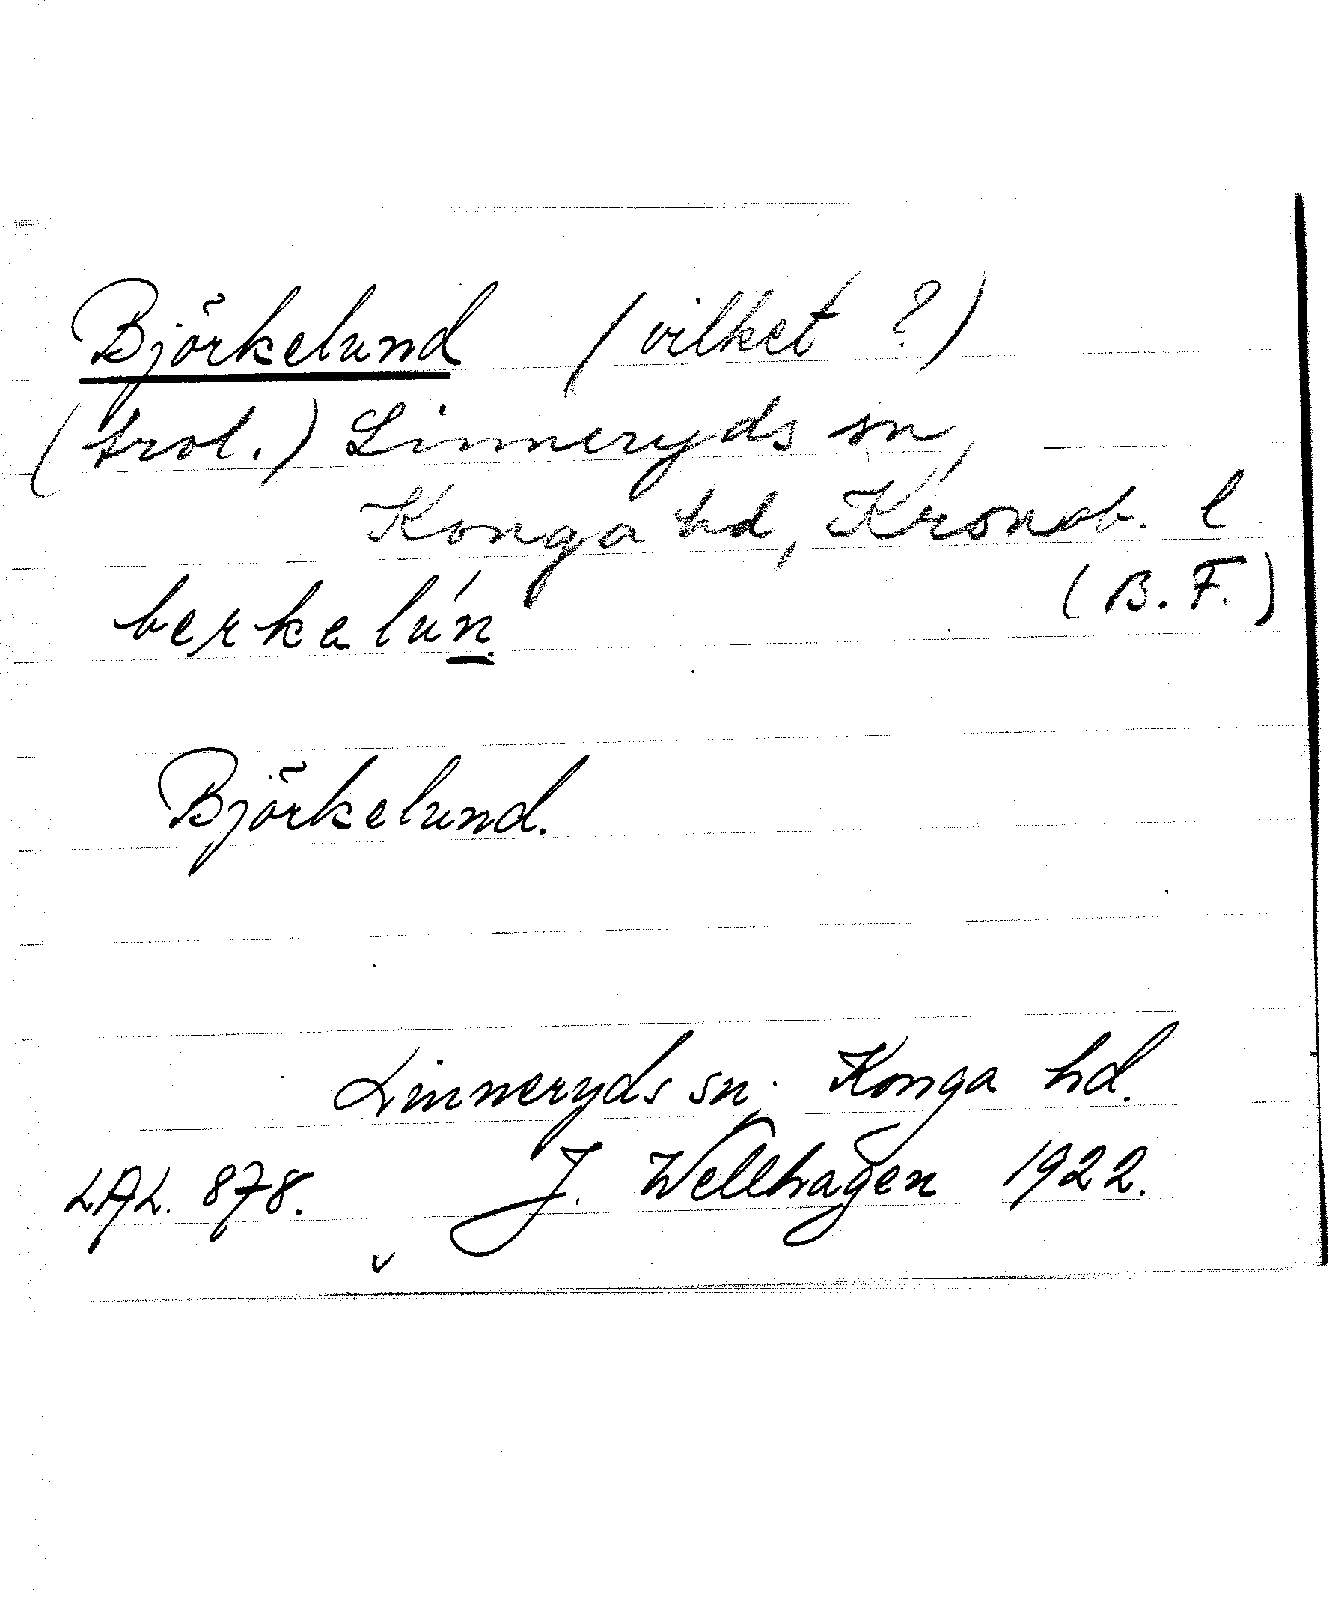 Björkelund (vilket ?)
(trol.) Linneryds sn,
Konga hd, Kronob. l
(B. F.)
berkalún
Björkelund.
Linneryds sn. Konga hd.
LAL. 878. J. Wellhagen 1922.